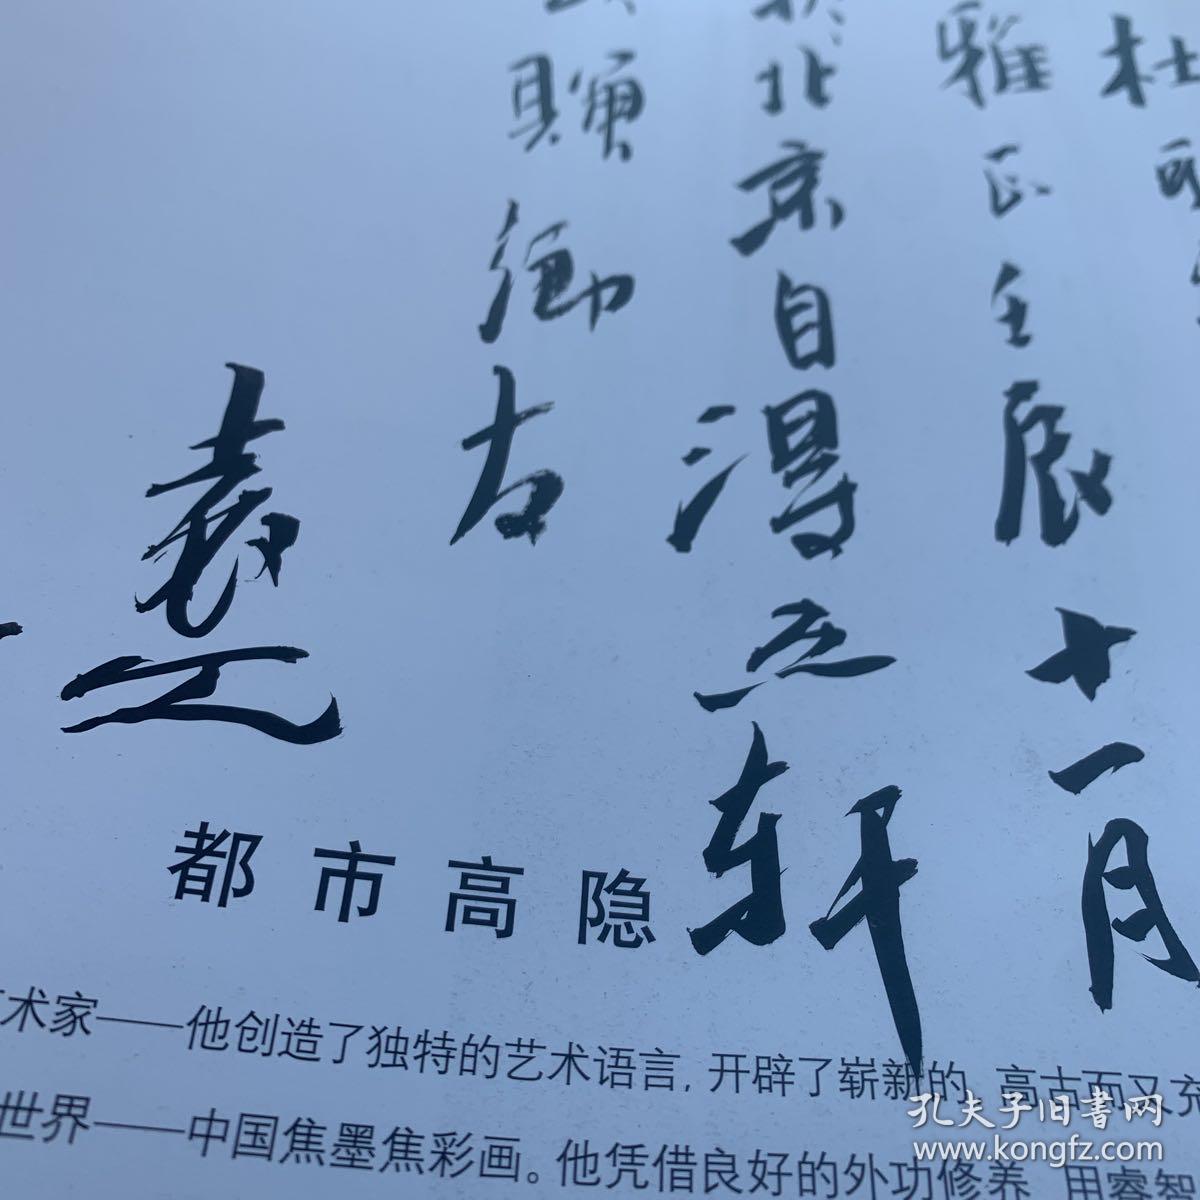 杜
雅正壬辰十一月
北京自得立轩
赠 御古
袁工
都市高隐
术家——他创造了独特的艺术语言，开辟了崭新的、高古而又充
世界——中国焦墨焦彩画。他凭借良好的外功修养、用睿智
孔夫子旧书网
www.kongfz.com